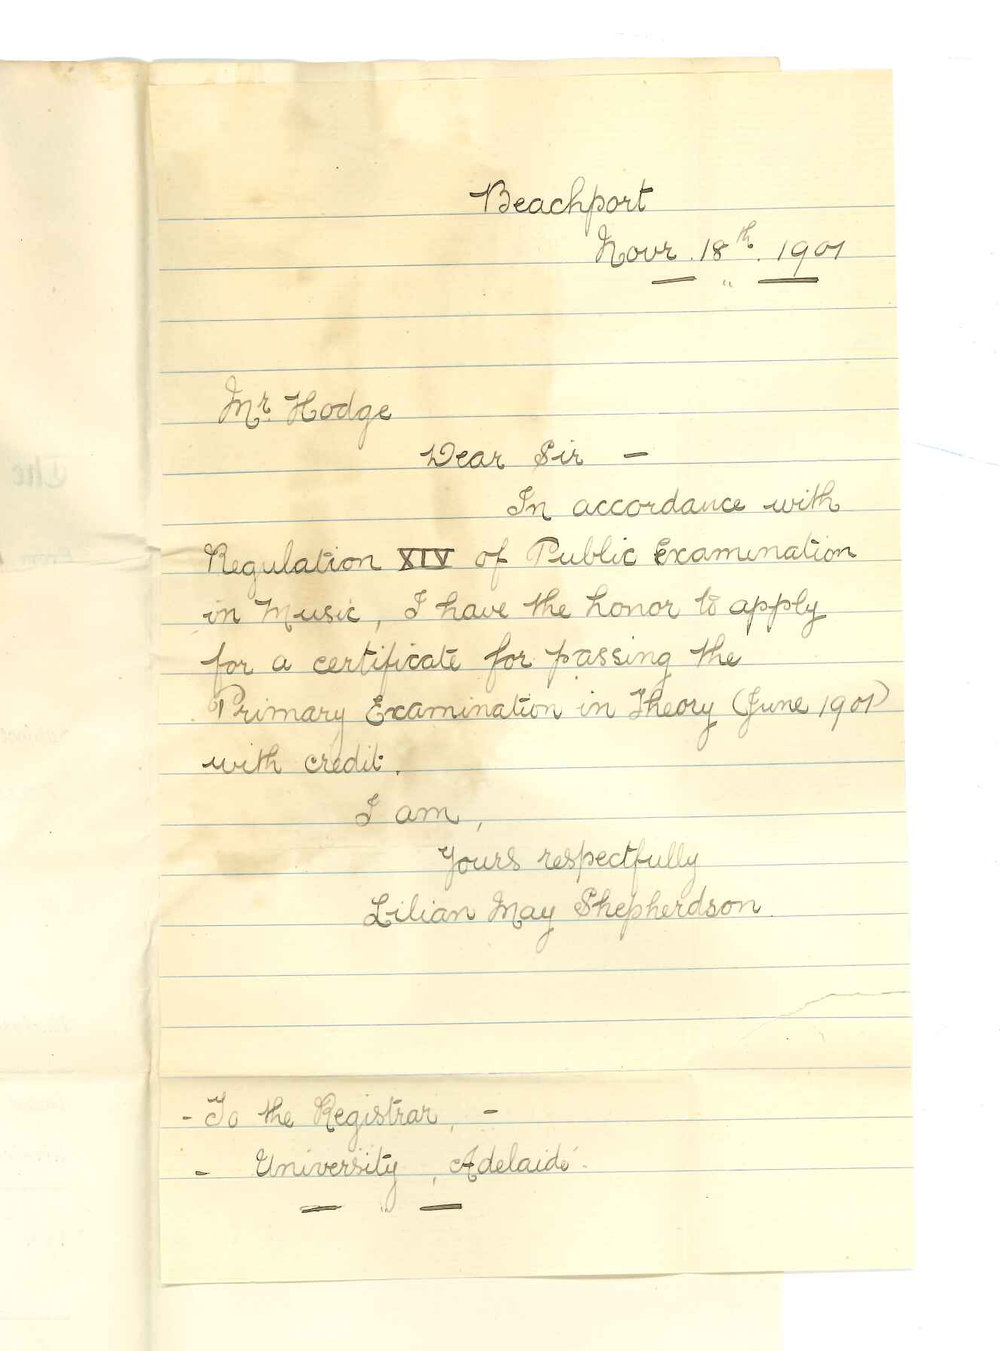 Beachport
Novr. 18th. 1901
Mr. Hodge
Dear Sir —
In accordance with
Regulation XIV of Public Examination
in Music, I have the honor to apply
for a certificate for passing the
Primary Examination in Theory (June 1901)
with credit.
I am,
Yours respectfully
Lilian May Shepherdson.
- To the Registrar, -
- University, Adelaide.
The
From